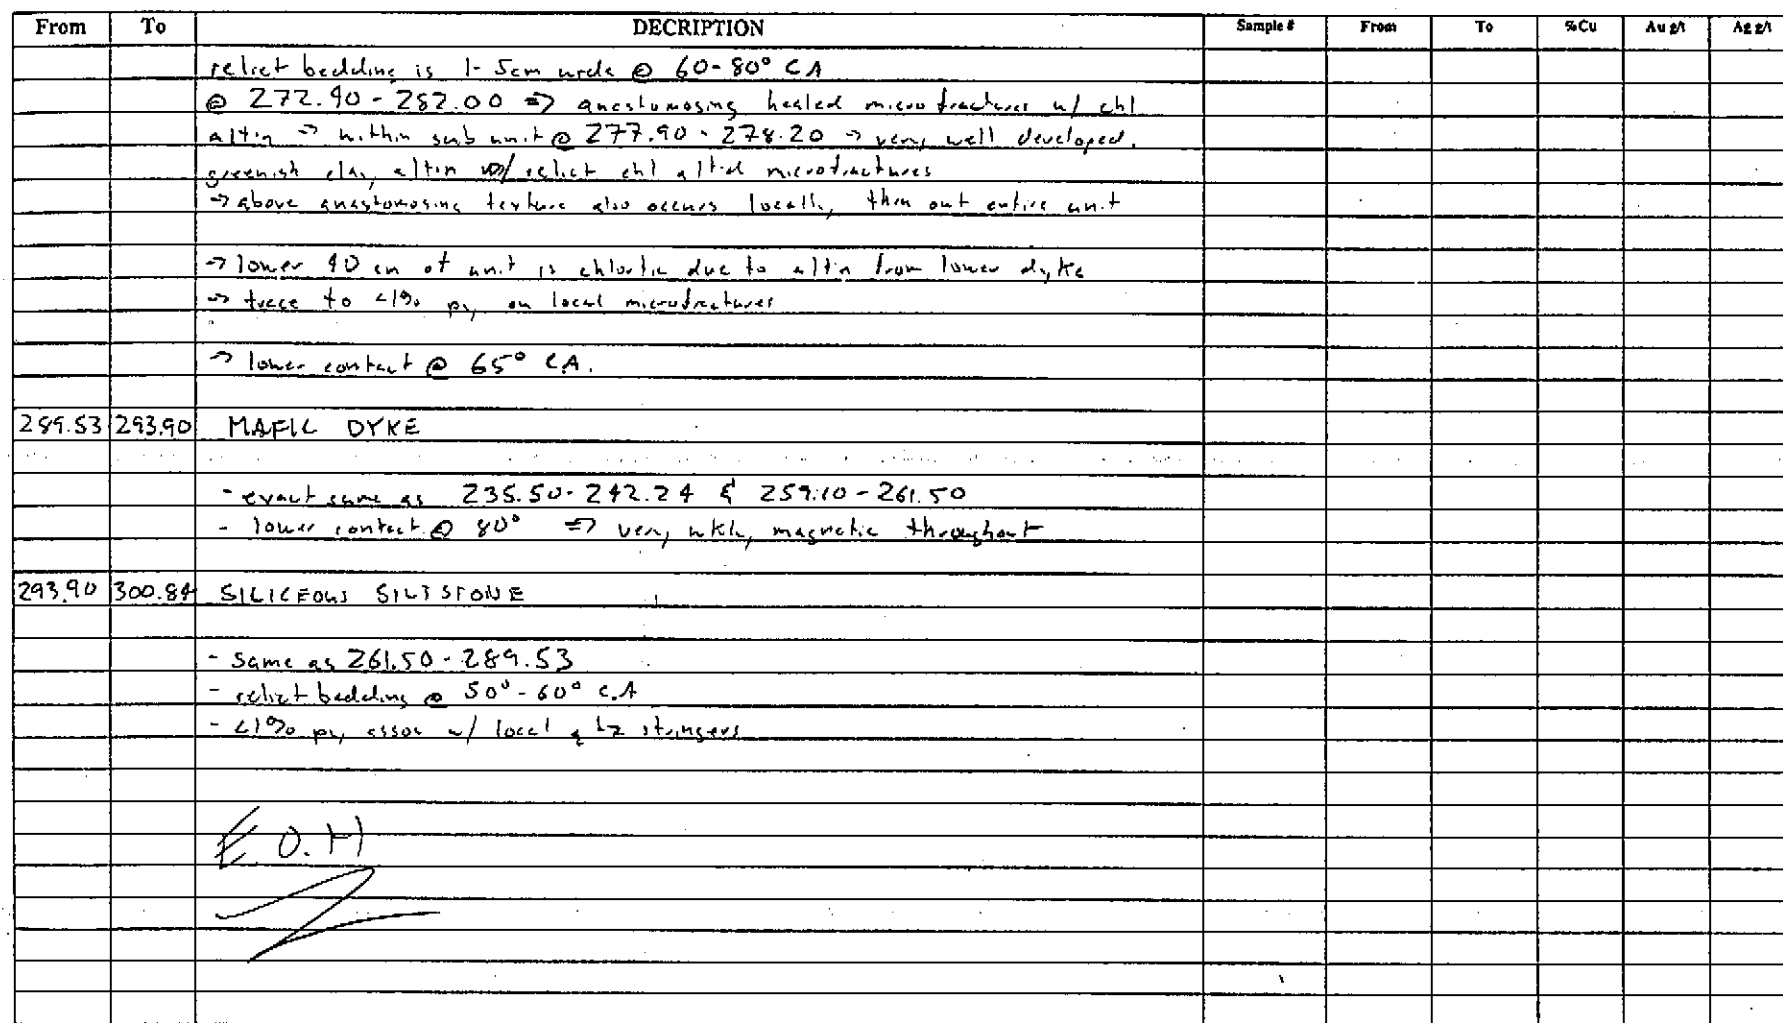 From To DECRIPTION Sample # From To %Cu Au g/t Ag g/t
relict bedding is 1-5cm wide @ 60-80° CA
@ 272.90-282.00 => anastomosing healed microfractures w/ chl
altin -> within sub unit @ 277.90-278.20 -> very well developed.
greenish clay altin w/ relict chl alt'd microfractures
-> above anastomosing texture also occurs locally thru out entire unit
-> lower 40 cm of unit is chloritic due to altin from lower dyke
-> trace to <1% py on local microfractures
-> lower contact @ 65° CA.
289.53 293.90 MAFIC DYKE
- exact same as 235.50-242.24 & 259.10-261.50
- lower contact @ 80° => very wkly magnetic throughout
293.90 300.84 SILICEOUS SILTSTONE
- same as 261.50-289.53
- relict bedding @ 50°-60° C.A
- <1% py assoc w/ local qtz stringers
E.O.H